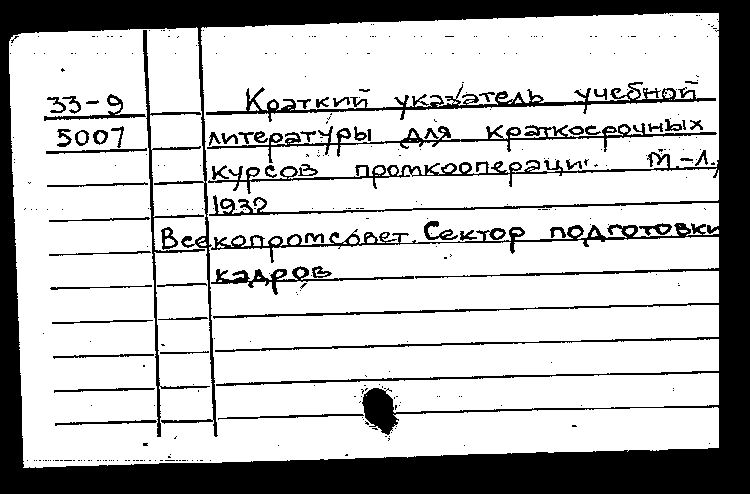 33-9 Краткий указатель учебной
5007 литературы для краткосрочных
курсов промкооперации. М.-Л.,
1932
Всекопромсовет. Сектор подготовки
кадров